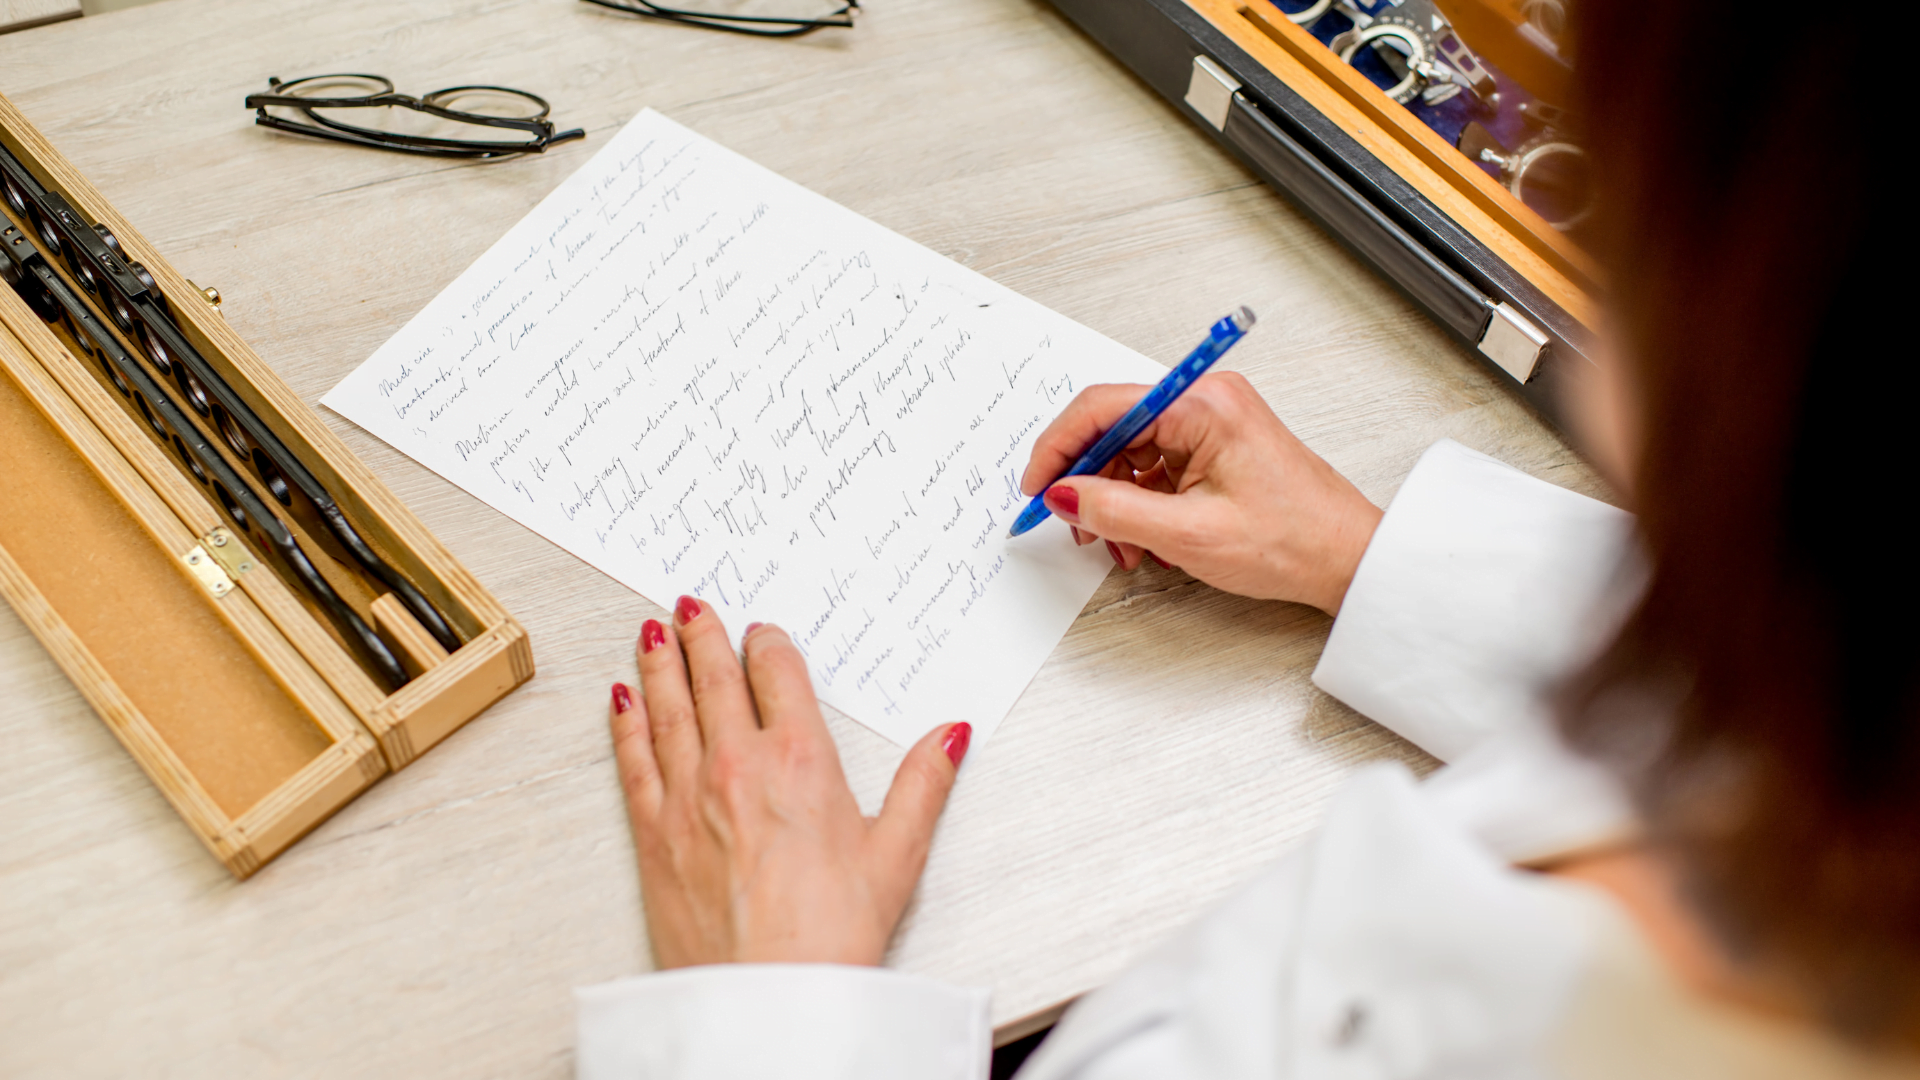 Medicine is a science and practice of the diagnose
treatment, and prevention of disease. The word medicine
is derived from Latin medicus, meaning a physic
Medicine encompasses a variety of health care
practices evolved to maintain and restore health
by the prevention and treatment of illness
Contemporary medicine applies biomedical sciences
biomedical research, genetic, medical technology
to diagnose, treat and prevent injury and
disease, typically through pharmaceuticals or
surgery, but also through therapies as
diverse as psychotherapy external splints
Prescientific forms of medicine are now known as
traditional medicine and folk medicine. They
remain commonly used with
of scientific medicine